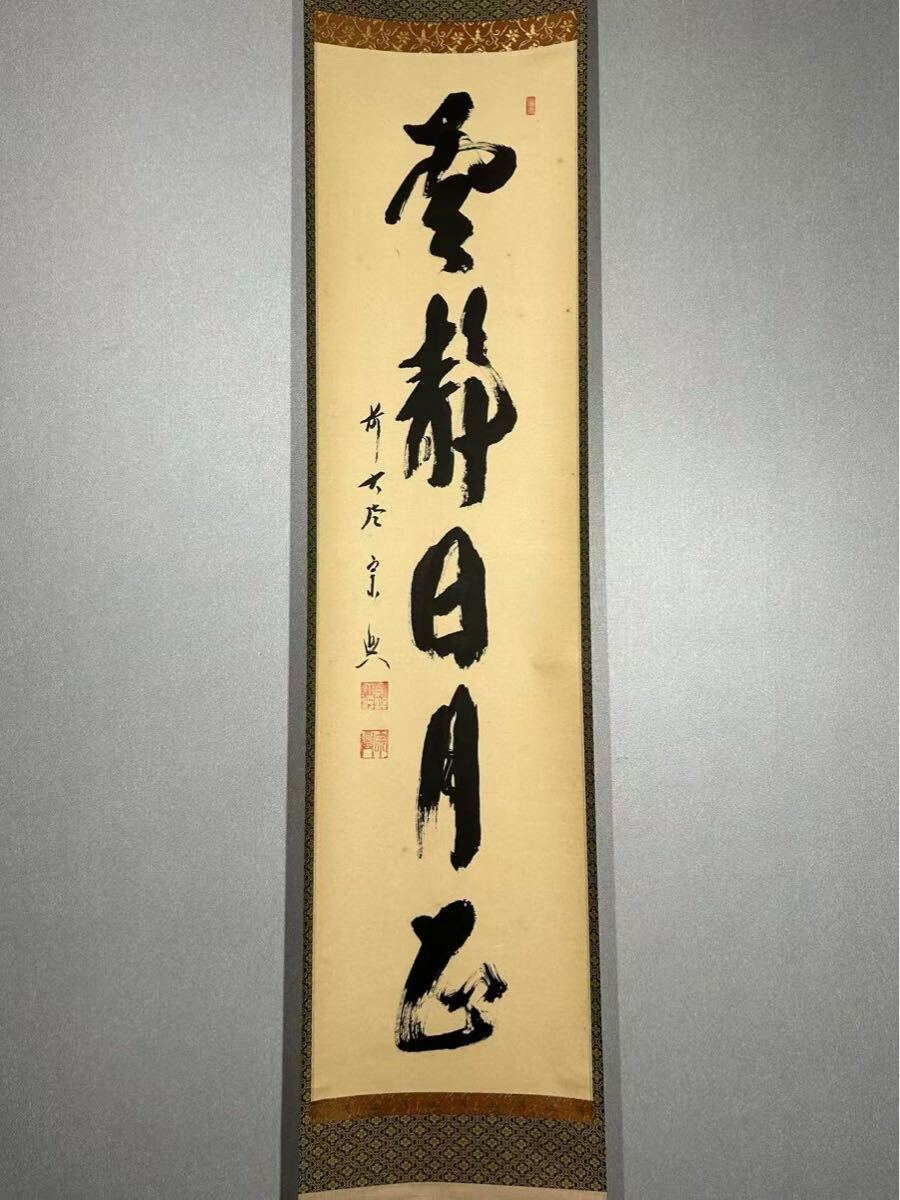 雲静日月正
前大徳宗興